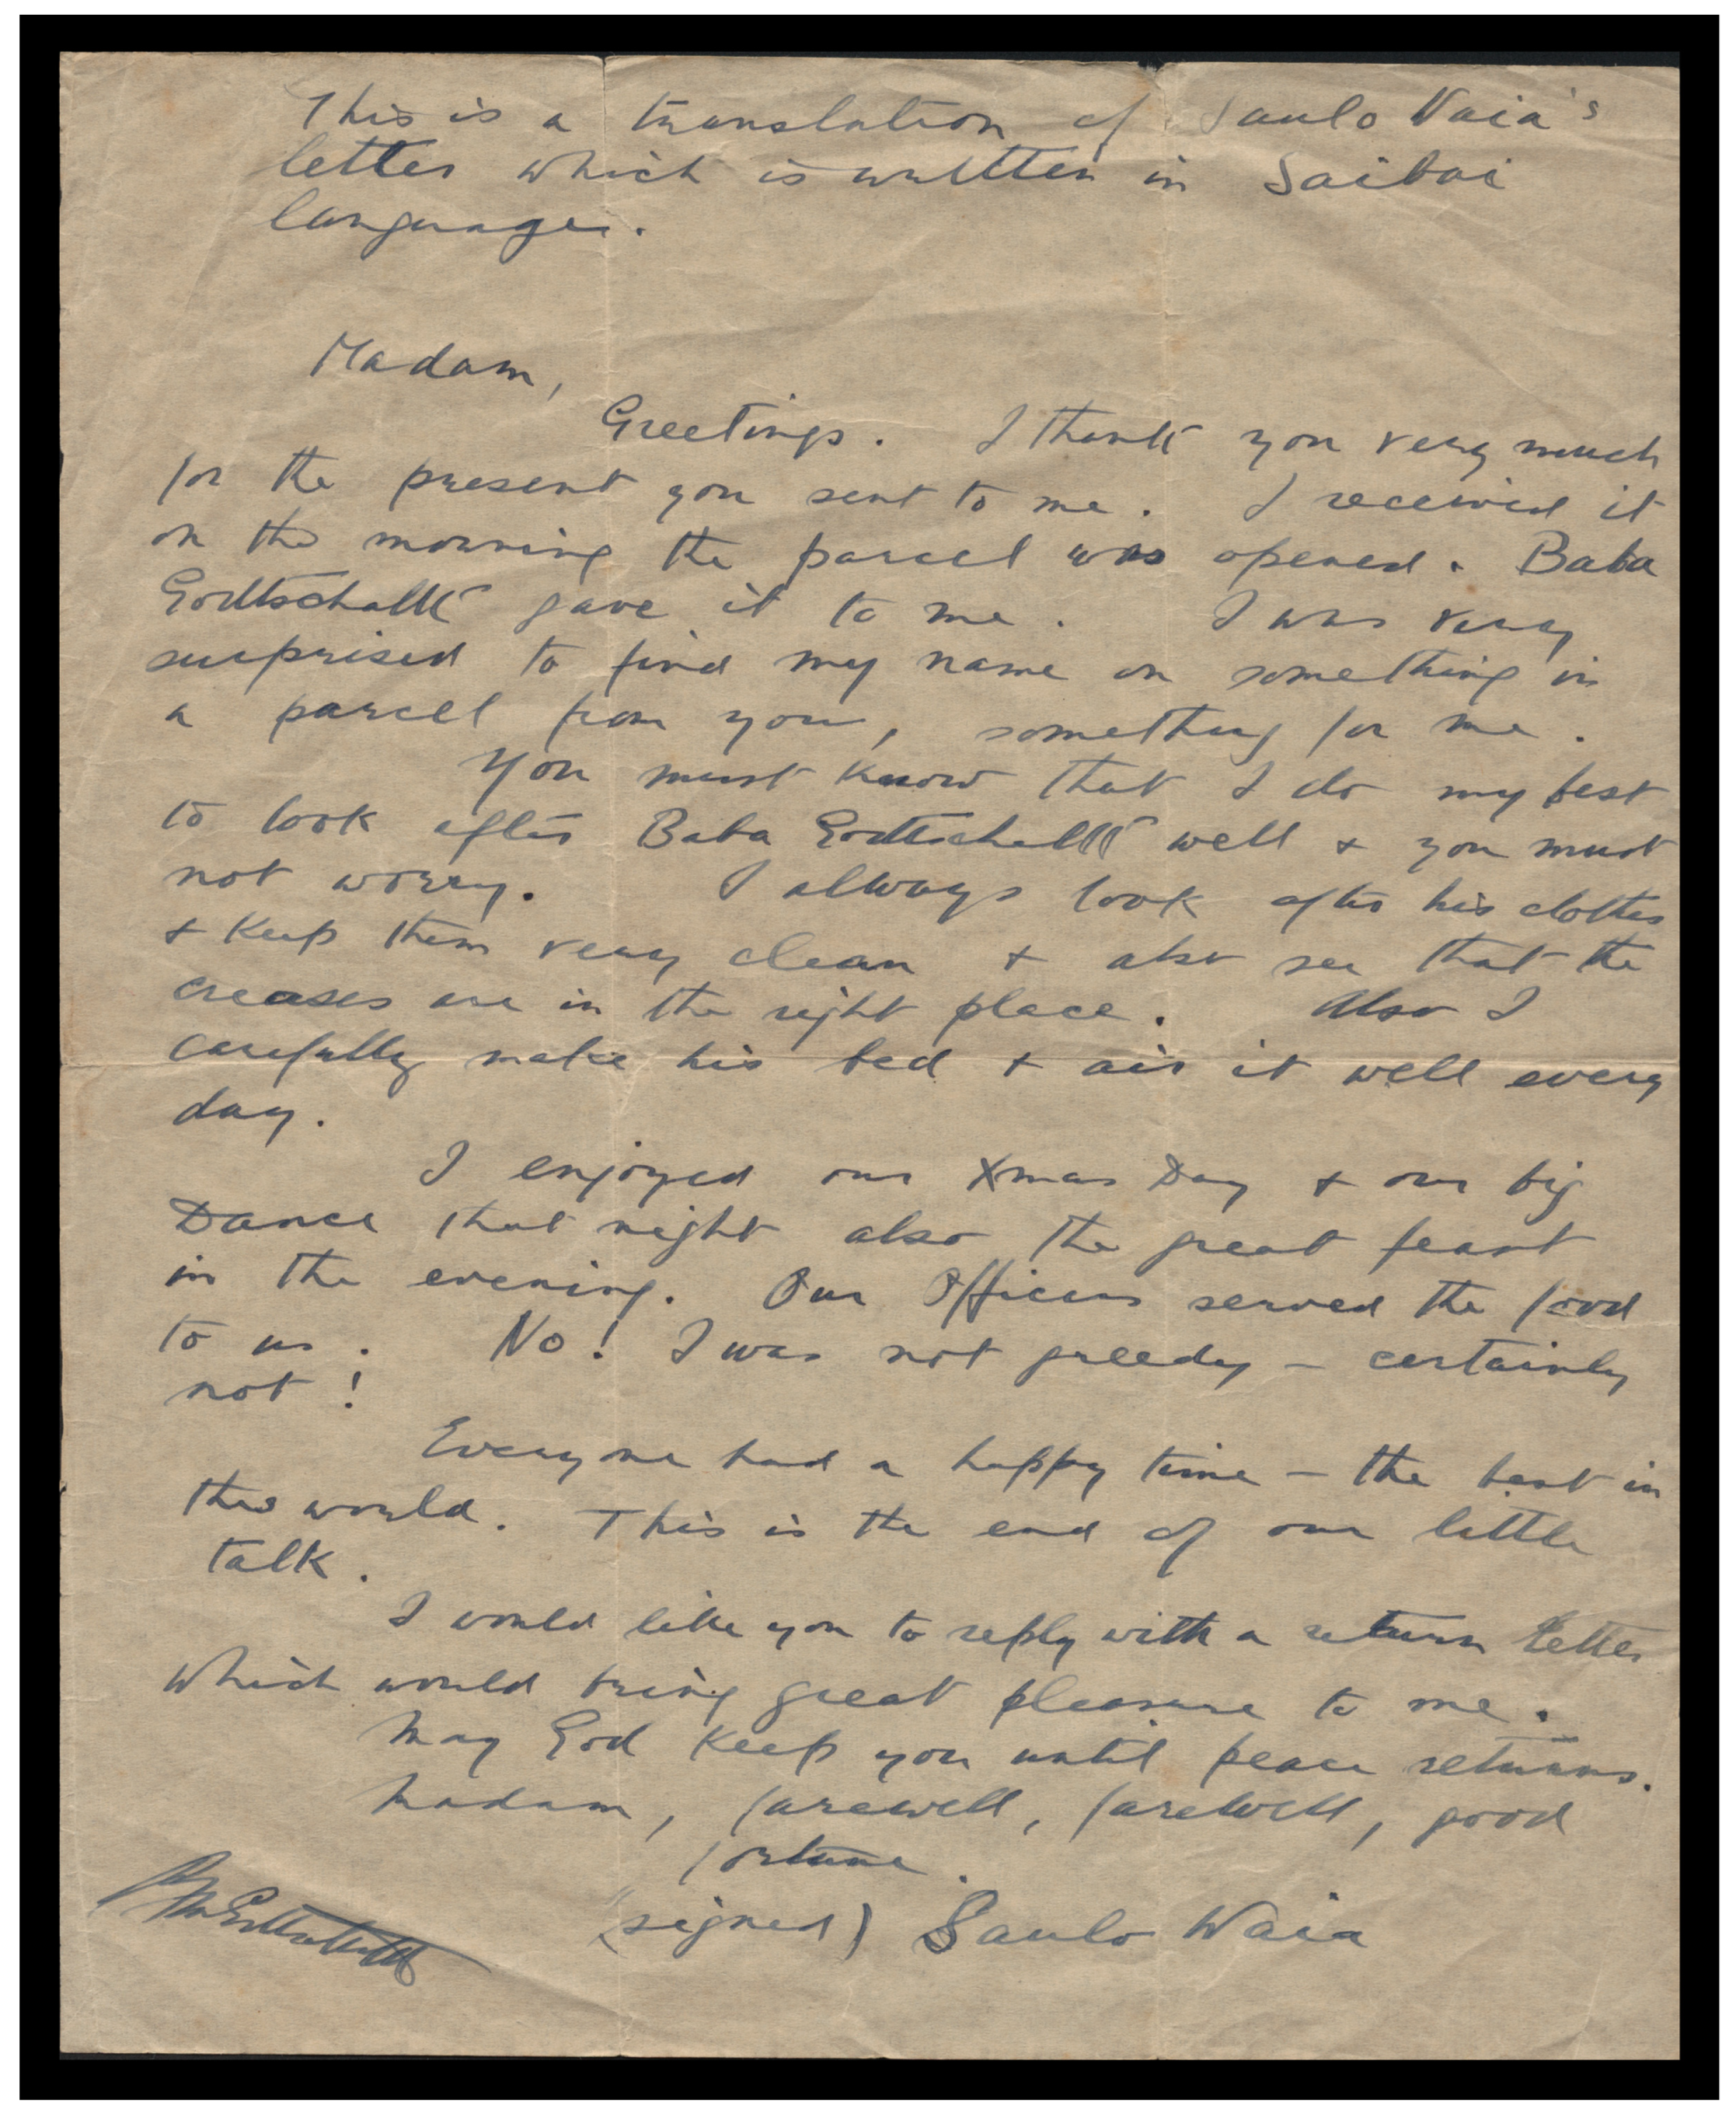 This is a translation of Saulo Waia's
letter which is written in Saibai
language.
Madam,
Greetings. I thank you very much
for the present you sent to me. I received it
on the morning the parcel was opened. Baba
Godtschalk gave it to me. I was very
surprised to find my name on something in
a parcel from you, something for me.
You must know that I do my best
to look after Baba Godtschalk well + you must
not worry. I always look after his clothes
+ keep them very clean + also see that the
creases are in the right place. Also I
carefully make his bed + air it well every
day.
I enjoyed our Xmas Day + our big
Dance that night also the great feast
in the evening. Our Officers served the food
to us. No! I was not greedy - certainly
not!
Everyone had a happy time - the best in
the world. This is the end of our little
talk.
I would like you to reply with a return letter
which would bring great pleasure to me.
May God keep you until peace returns.
Madam, farewell, farewell, good
fortune.
(signed) Saulo Waia